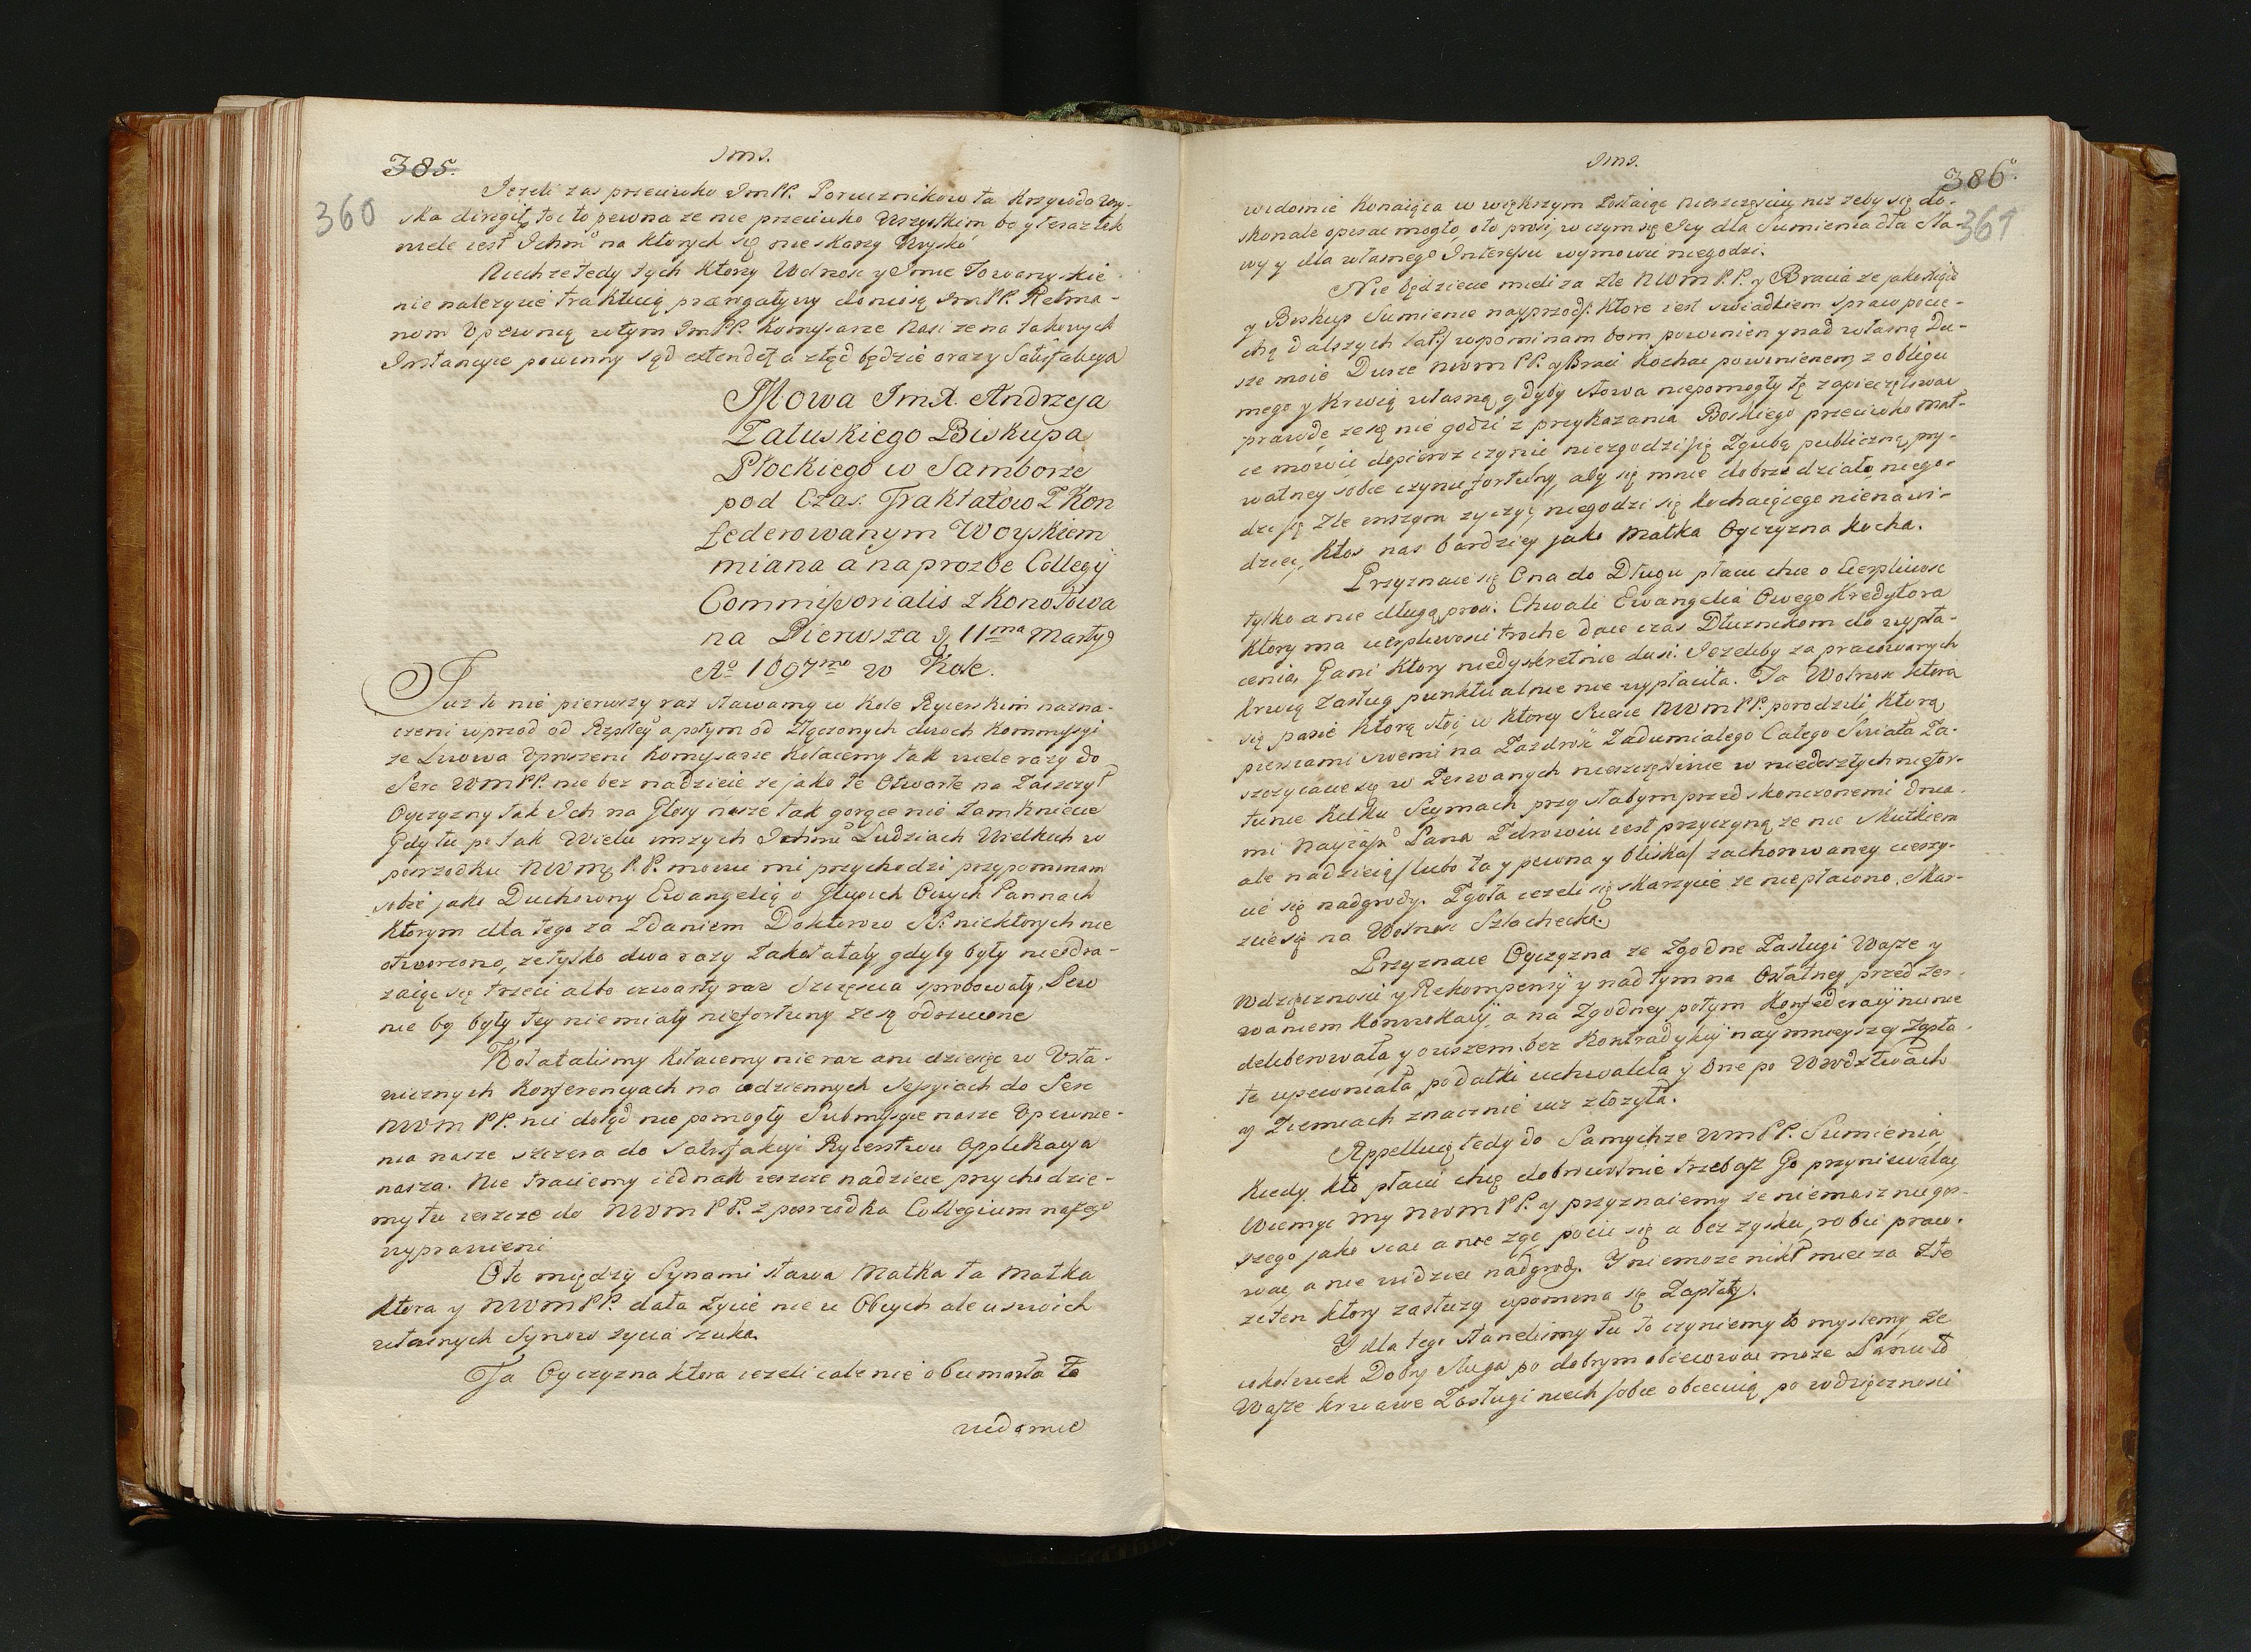 385.
360
Jms.
Jezeli zas przeciwko JmPP. Porucznikow ta Krzywda Woy-
ska dirigit, toć to pewna ze nie przeciwko Wszystkim bo y teraz tak
wiele iest Ichm na ktorych się nieskarzy Woysko
Niechze tedy tych ktorzy Wolnosc y Jmie Towarzyskie
nie nalezycie traktuią prærogatywy doniosą JmPP. Hetma-
nom Upewnią wtym JmPP. Komysarze Nasi ze na takowych
Instancyie powinny sąd extendet, a ztąd będzie orazy Satisfakcya
Mowa JmX. Andrzeja
Załuskiego Biskupa
Płockiego w Samborze
pod Czas. Traktatow Z Kon
federowanym Woyskiem
miana a na prozbe Collegij
Commissorialis z Konotowa
na Pierwsza d 11ma Marty
Ao 1697mo w Kole.
Juz to nie pierwszy raz stawamy w Kole Rycerskim nazna-
czeni wprzod od Rzptey a potym od Złączonych dwoch Kommyssyi
ze Lwowa Uproszeni Komysarze Kołacemy tak wiele razy do
Serc WMPP. nie bez nadzieie ze jako te Otwarte na Zaszczyt
Oyczyzny tak Ich na Głosy nasze tak gorące nie zamkniecie
Gdy tu po tak Wielu inszych Ichm Ludziach Wielkich w
porzodku NWM P.P. mowic mi przychodzi przypominam
sobie jako Duchowny Ewangelią o Głupich Owych Pannach
Ktorym dla tego za Zdaniem Doktorow SS: niektorych nie
otworzono, ze tylko dwa razy Zakołatały, gdyby były nieodra-
zaiąc się trzeci albo czwarty raz Szczęscia sprobowały, Pew
nie by były tey niemiały niefortuny ze są odrzucone
Kołatalismy Kołacemy nie raz ani dziesięc w Usta-
wicznych Konferencyach na codziennych Sessyiach do Serc
NWM PP. nic dotąd nie pomogły Submyssye nasze Upewnie-
nia nasze szczera do Satisfakcyi Rycerstwu Applikacya
nasza. Nie traciemy iednak ieszcze nadzieie przychodzie-
my tu ieszcze do NWMPP. z posrzodka Collegium naszego
wyprawieni
Oto między Synami stawa Matka ta Matka
ktora y NWMPP. dała Zycie nie u Obcych ale u swoich
własnych Synow zycia szuka
Ta Oyczyzna ktora iezeli cale nie obumarła to
widomie
Jms.
386.
361
widomie Konaiąca w większym zostaiąc nieszczęsciu niz zeby się do-
skonale opisac mogło, oto prosi, w czym się Jey dla Sumienia dla Sła-
wy y dla własnego Interessu wymowic niegodzi.
Nie będziecie mieli za złe NWMPP. y Bracia ze jako Xiądz
y Biskup Sumienie nayprzod /: ktore iest swiadkiem spraw pocie-
chą dalszych lat:/ wspominam bom powinien y nad własną Du-
sze moie Dusze NWMPP. y Braci Kochac powinienem z obligu
mego y Krwią własną gdyby słowa niepomogły tę zapieczętowac
prawdę, ze się nie godzi z przykazania Boskiego przeciwko Mat-
ce mowic dopieroz czynic niezgodzi się Zgubą publiczną pry-
watney sobie czynic fortuny, aby się mnie dobrze działo niego-
dzi się zle inszym zyczyc, niegodzi się kochaiącego nienawi-
dziec, Ktos nas bardziey jako Matka Oyczyzna kocha.
Przyznaie się Ona do Długu płacic chce o Cierpliwosc
tylko a nie długą prosi. Chwali Ewangelia Owego Kredytora
Ktory ma cierpliwosci troche daie czas Dłuznikom do wypła-
cenia, Gani Ktory niedyskretnie dusi. Jezeliby zapracowanych
krwią Zasług punktualnie nie wypłaciła. Ta Wolnosc ktora
się pasie ktorą stoi, w ktorey Sercie NWMPP. porodzili, ktorą
piersiami swemi na Zazdrosc Zadumiałego Całego Swiata Za-
szczycacie się w Zerwanych nieszczęsliwie w niedoszłych niefor-
tunie Kilku Seymach przy słabym przed skonczonemi dnia-
mi Nayiass Pana Zdrowiu iest przyczyną ze nie Skutkiem
ale nadzieią /lubo ta y pewna y bliska/ zachorowaney cieszy-
cie się nadgrody. Zgoła iezeli się skarzycie ze niepłacono, Skar-
zcie się na Wolnosc Szlachecką.
Przyznaie Oyczyzna ze Zgodne Zasługi Wasze y
Wdzięcznosci y Rekompensy y nad tym na Ostatney przed Zer-
waniem Konwokacij, a na Zgodney potym Konfederacij nunie
deliberowała y owszem bez Kontradykcij naymnieyszey Zapła
te upewniała, podatki uchwaliła y One po Wwdztwach
y Ziemiach znacznie iuz złozyła.
Appelluię tedy do Samychze WMPP. Sumienia
Kiedy kto płacic chce dobrowolnie trzebasz Go przyniewalac
Wiemyc my NWMPP. y przyznaiemy ze niemasz nic gor-
szego jako siac a nie ząc, pocic się a bez zysku, robic praco-
wac, a nie widziec nadgrody. Y niemoze nikt miec za złe
ze ten ktory zasłuzy upomina się Zapłaty.
Y dla tego stanelismy tu to czyniemy to myslemy, Ze
cokolwiek Dobry Sługa po dobrym obiecowac moze Panu to
Wasze krwawe Zasługi niech sobie obiecuią po wdzięcznosci